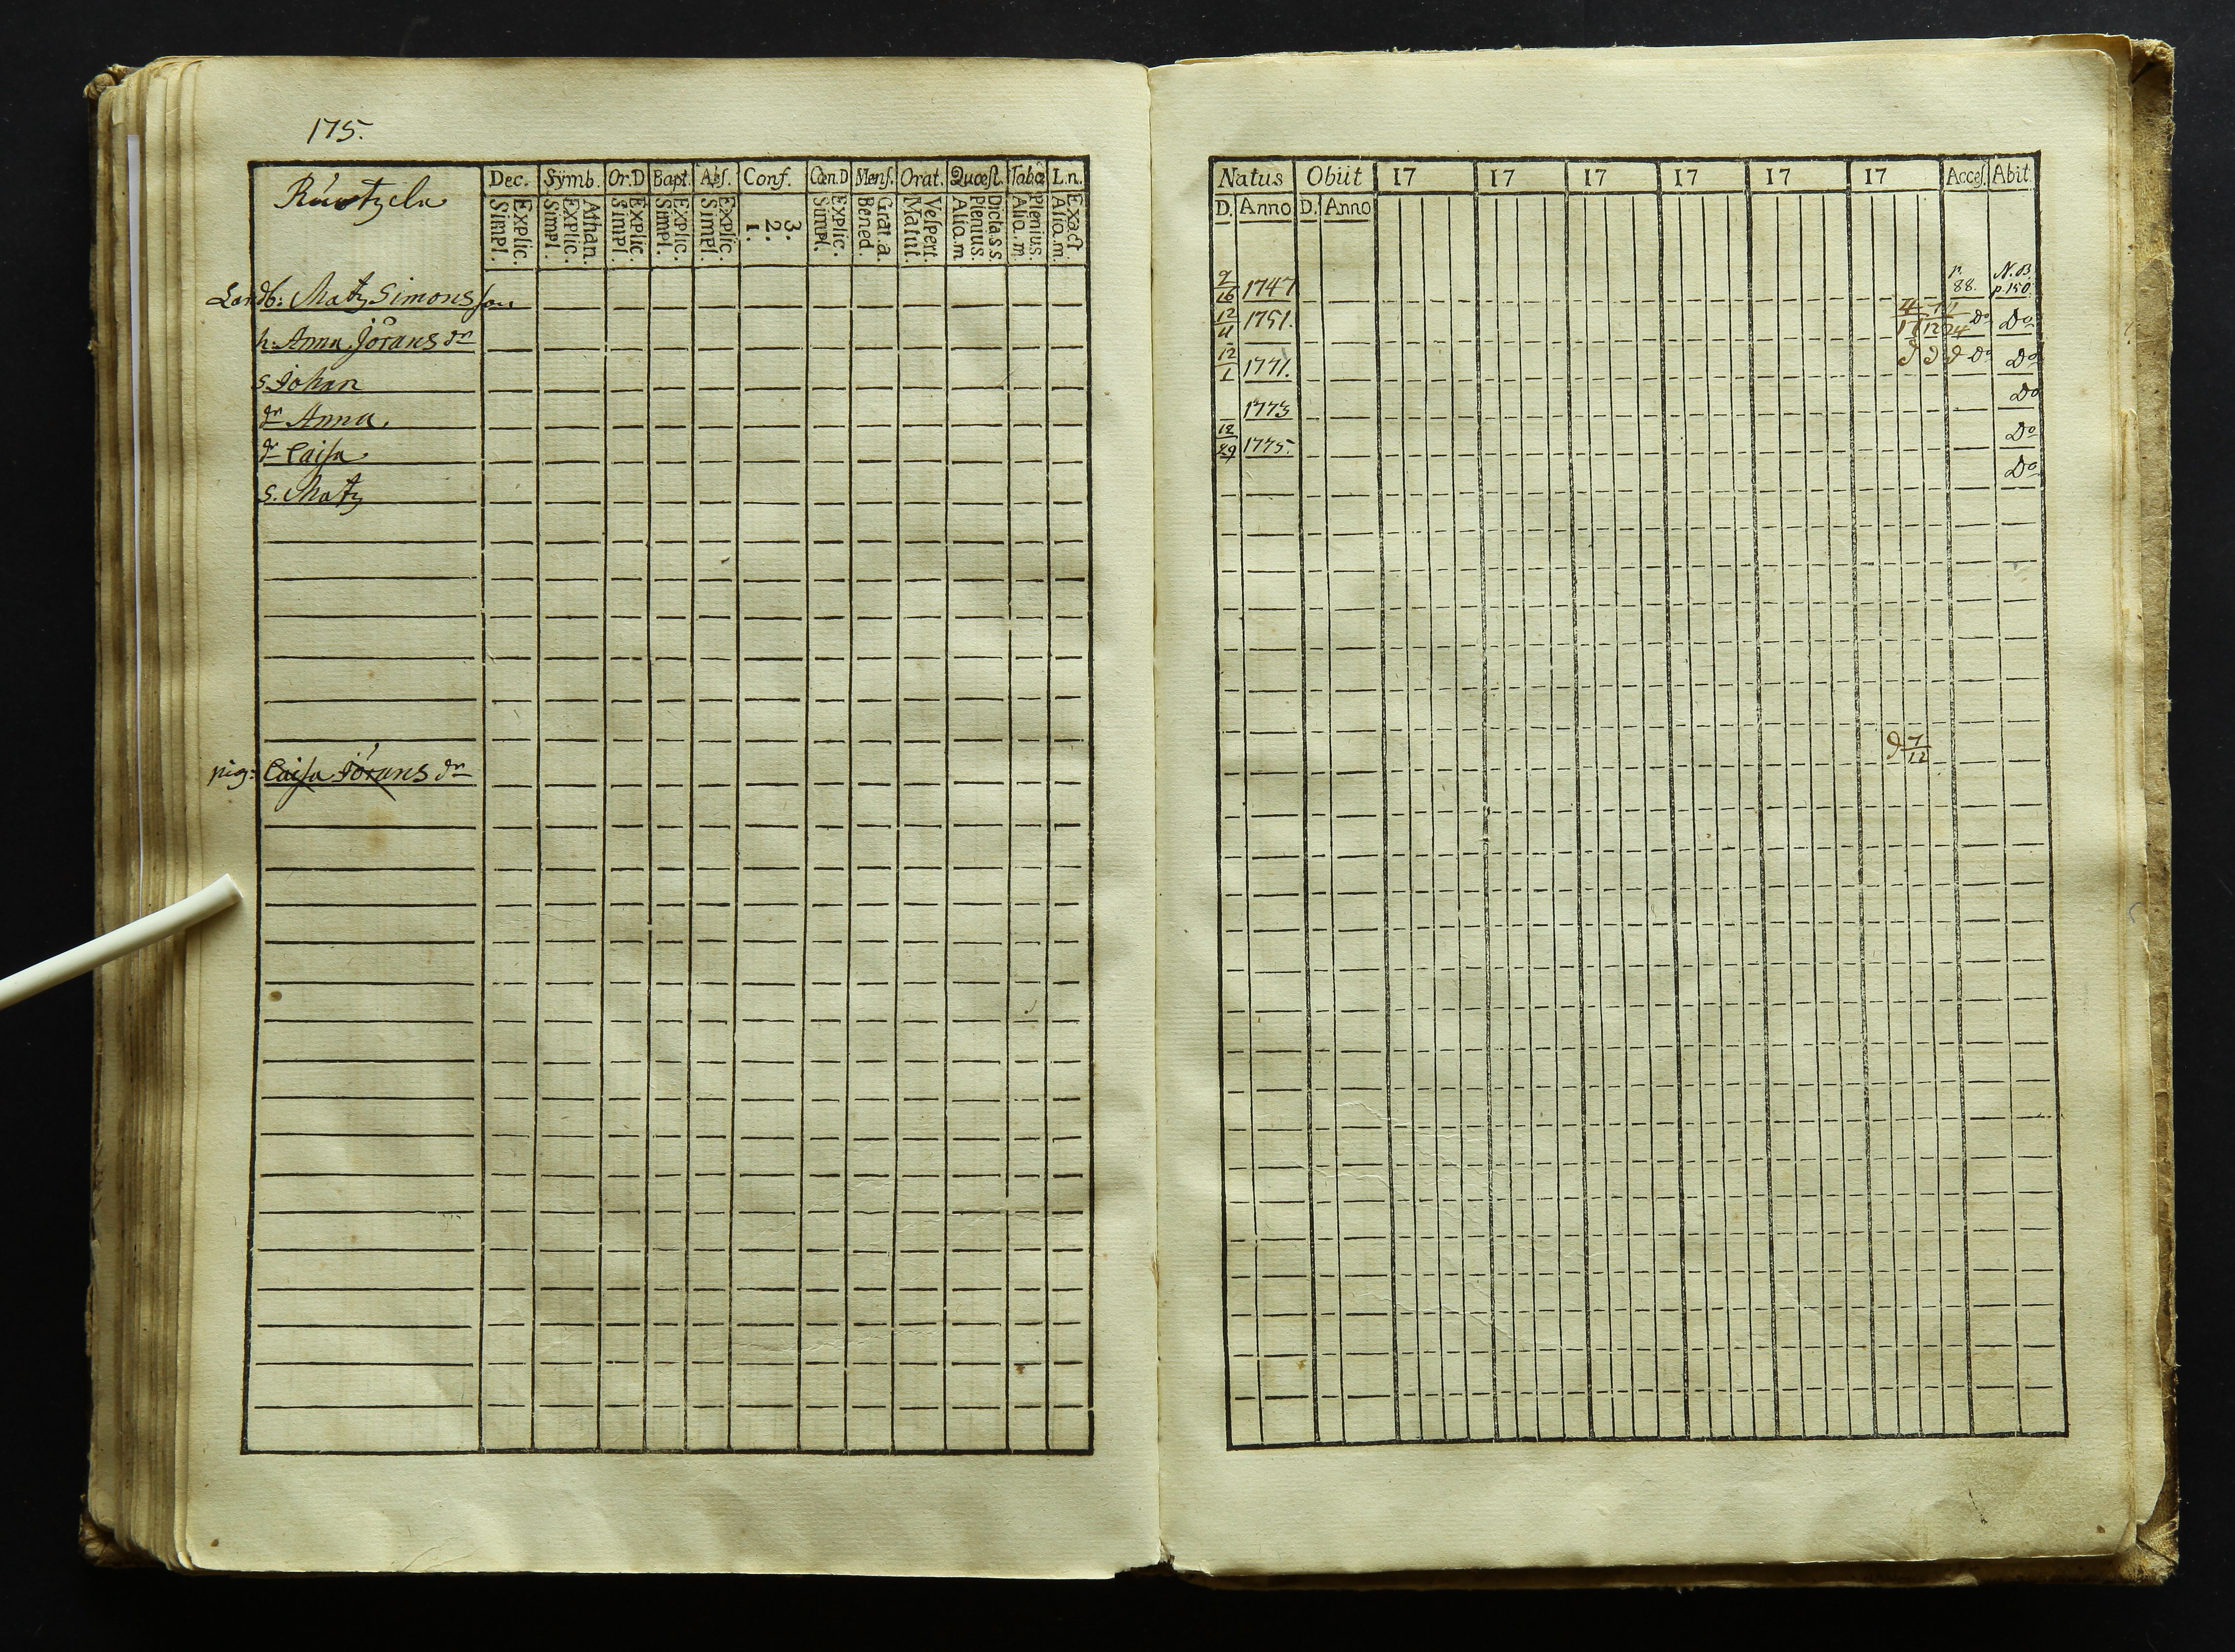 175.
Ruotzela
Dec. Symb. Or.D Bapt. Abs. Conf. Cœn.D Mens. Orat. Quæst. Tab.œ L.n.
Simpl. Explic. Simpl. Explic. Athan. Simpl. Explic. Simpl. Explic. Simpl. Explic. 1. 2. 3. Simpl. Explic. Bened. Grat.a. Matut. Vespert. Alio.m Plenius. Dicta.s.s. Alio.m Plenius. Alio.m. Exact.
Landb: Matz Simonsson
h: Anna Jörans dr
s. Johan
dr Anna.
dr Caisa
s. Matz
pig: Caisa Jörans dr
Natus Obiit 17 17 17 17 17 17 Acces. Abit.
D. Anno D. Anno
9/16 1747 p. 88. N.B. p. 150.
12/4 1751. 11/12 Do Do
12/1 1771. Do Do
1773 Do
12/29 1775. Do
Do
7/12